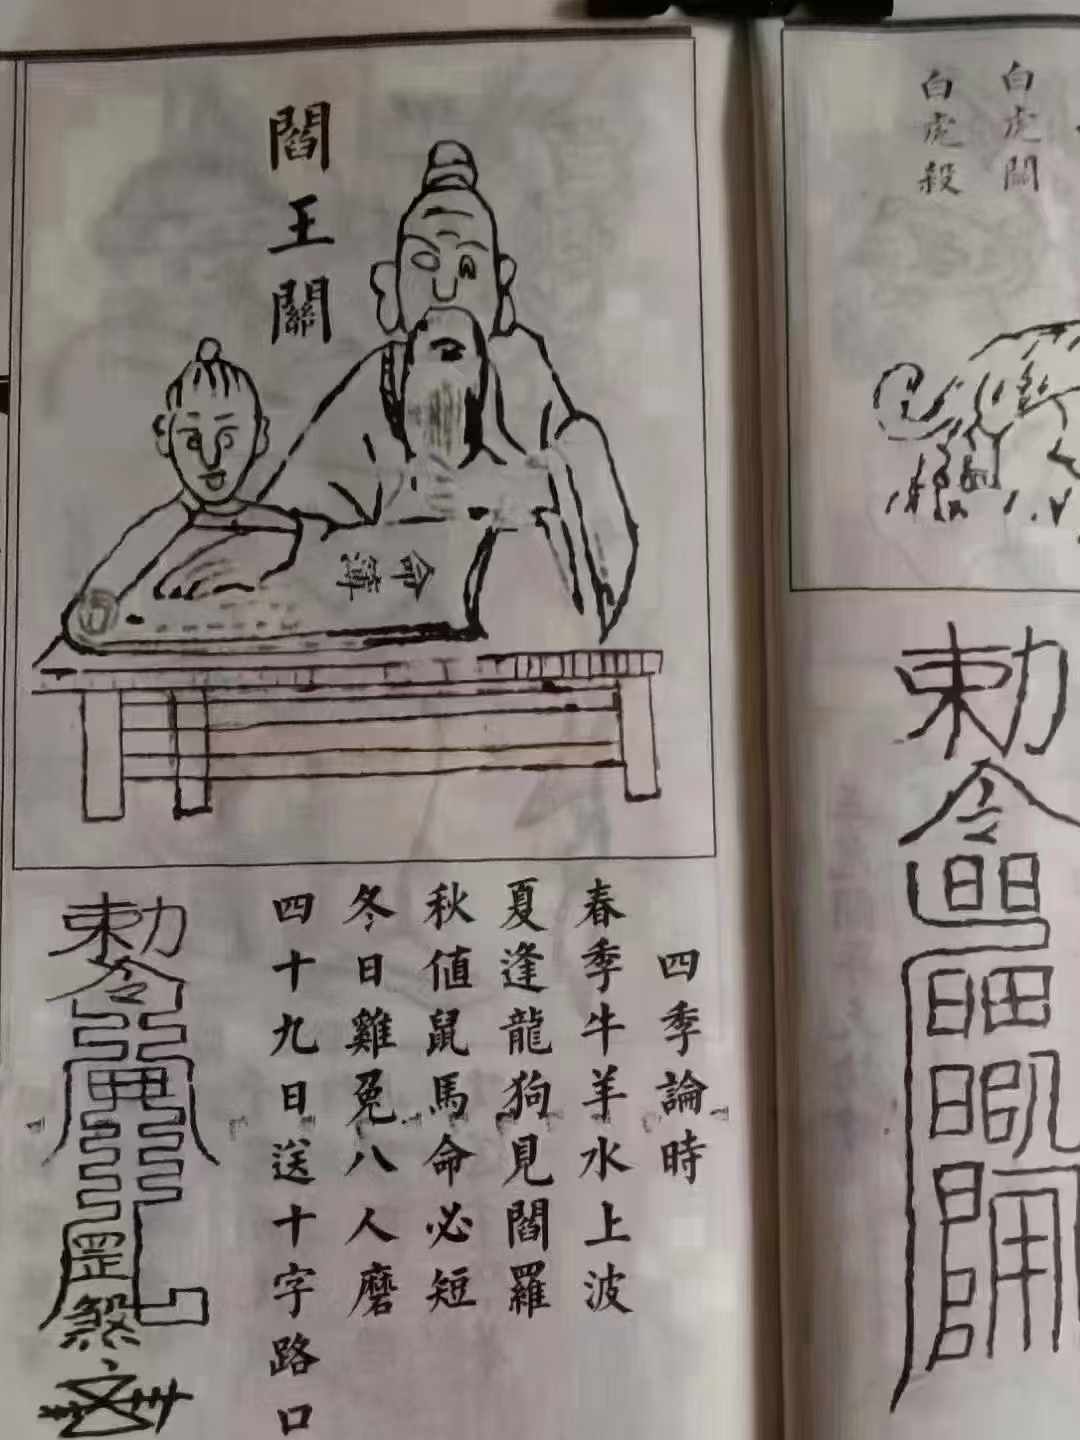 白虎關
白虎殺
勅令
閻王關
命簿
四季論時
春季牛羊水上波
夏逢龍狗見閻羅
秋值鼠馬命必短
冬日雞兔八人磨
四十九日送十字路口
勅令
罡煞